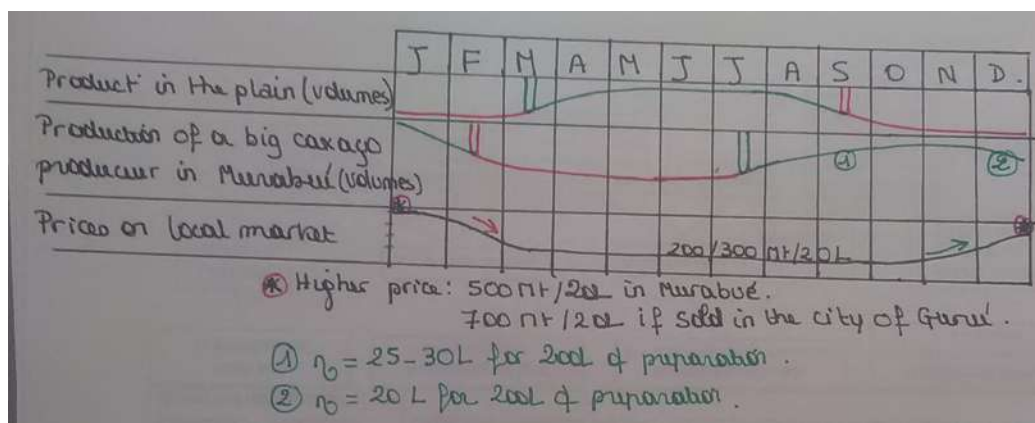 J F M A M J J A S O N D.
Product in the plain (volumes)
Production of a big caxaço
producuer in Murabué (volumes) ① ②
Prices on local market 200/300 Mt/20L
* Higher price: 500 Mt/20L in Murabué.
700 Mt/20L if sold in the city of Gurué.
① η = 25-30L for 200L of preparation.
② η = 20 L for 200L of preparation.